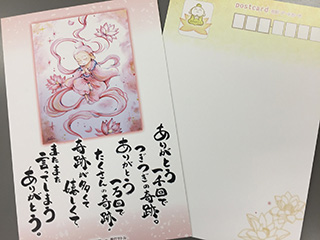 ありがとう
一千回で
つぎつぎの奇跡。
ありがとう
一万回で
たくさんの奇跡!
奇跡が多くて
嬉しくて
またまた
言ってしまう
ありがとう。
postcard